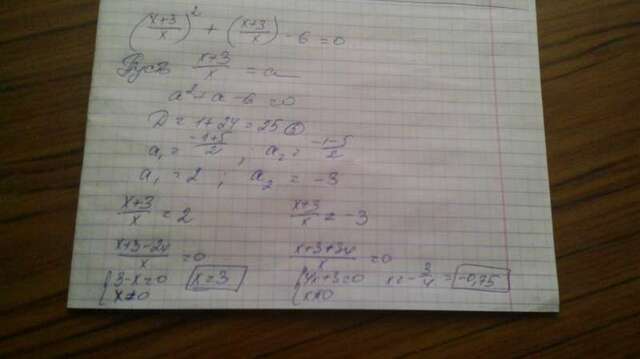 ((x+3)/x)² + ((x+3)/x) - 6 = 0
Пусть (x+3)/x = a
a² + a - 6 = 0
D = 1 + 24 = 25
a₁ = (-1+5)/2 ; a₂ = (-1-5)/2
a₁ = 2 ; a₂ = -3
(x+3)/x = 2 (x+3)/x = -3
(x+3-2x)/x = 0 (x+3+3x)/x = 0
{3-x=0 x=3 {4x+3=0 x = -3/4 = -0,75
x≠0 x≠0